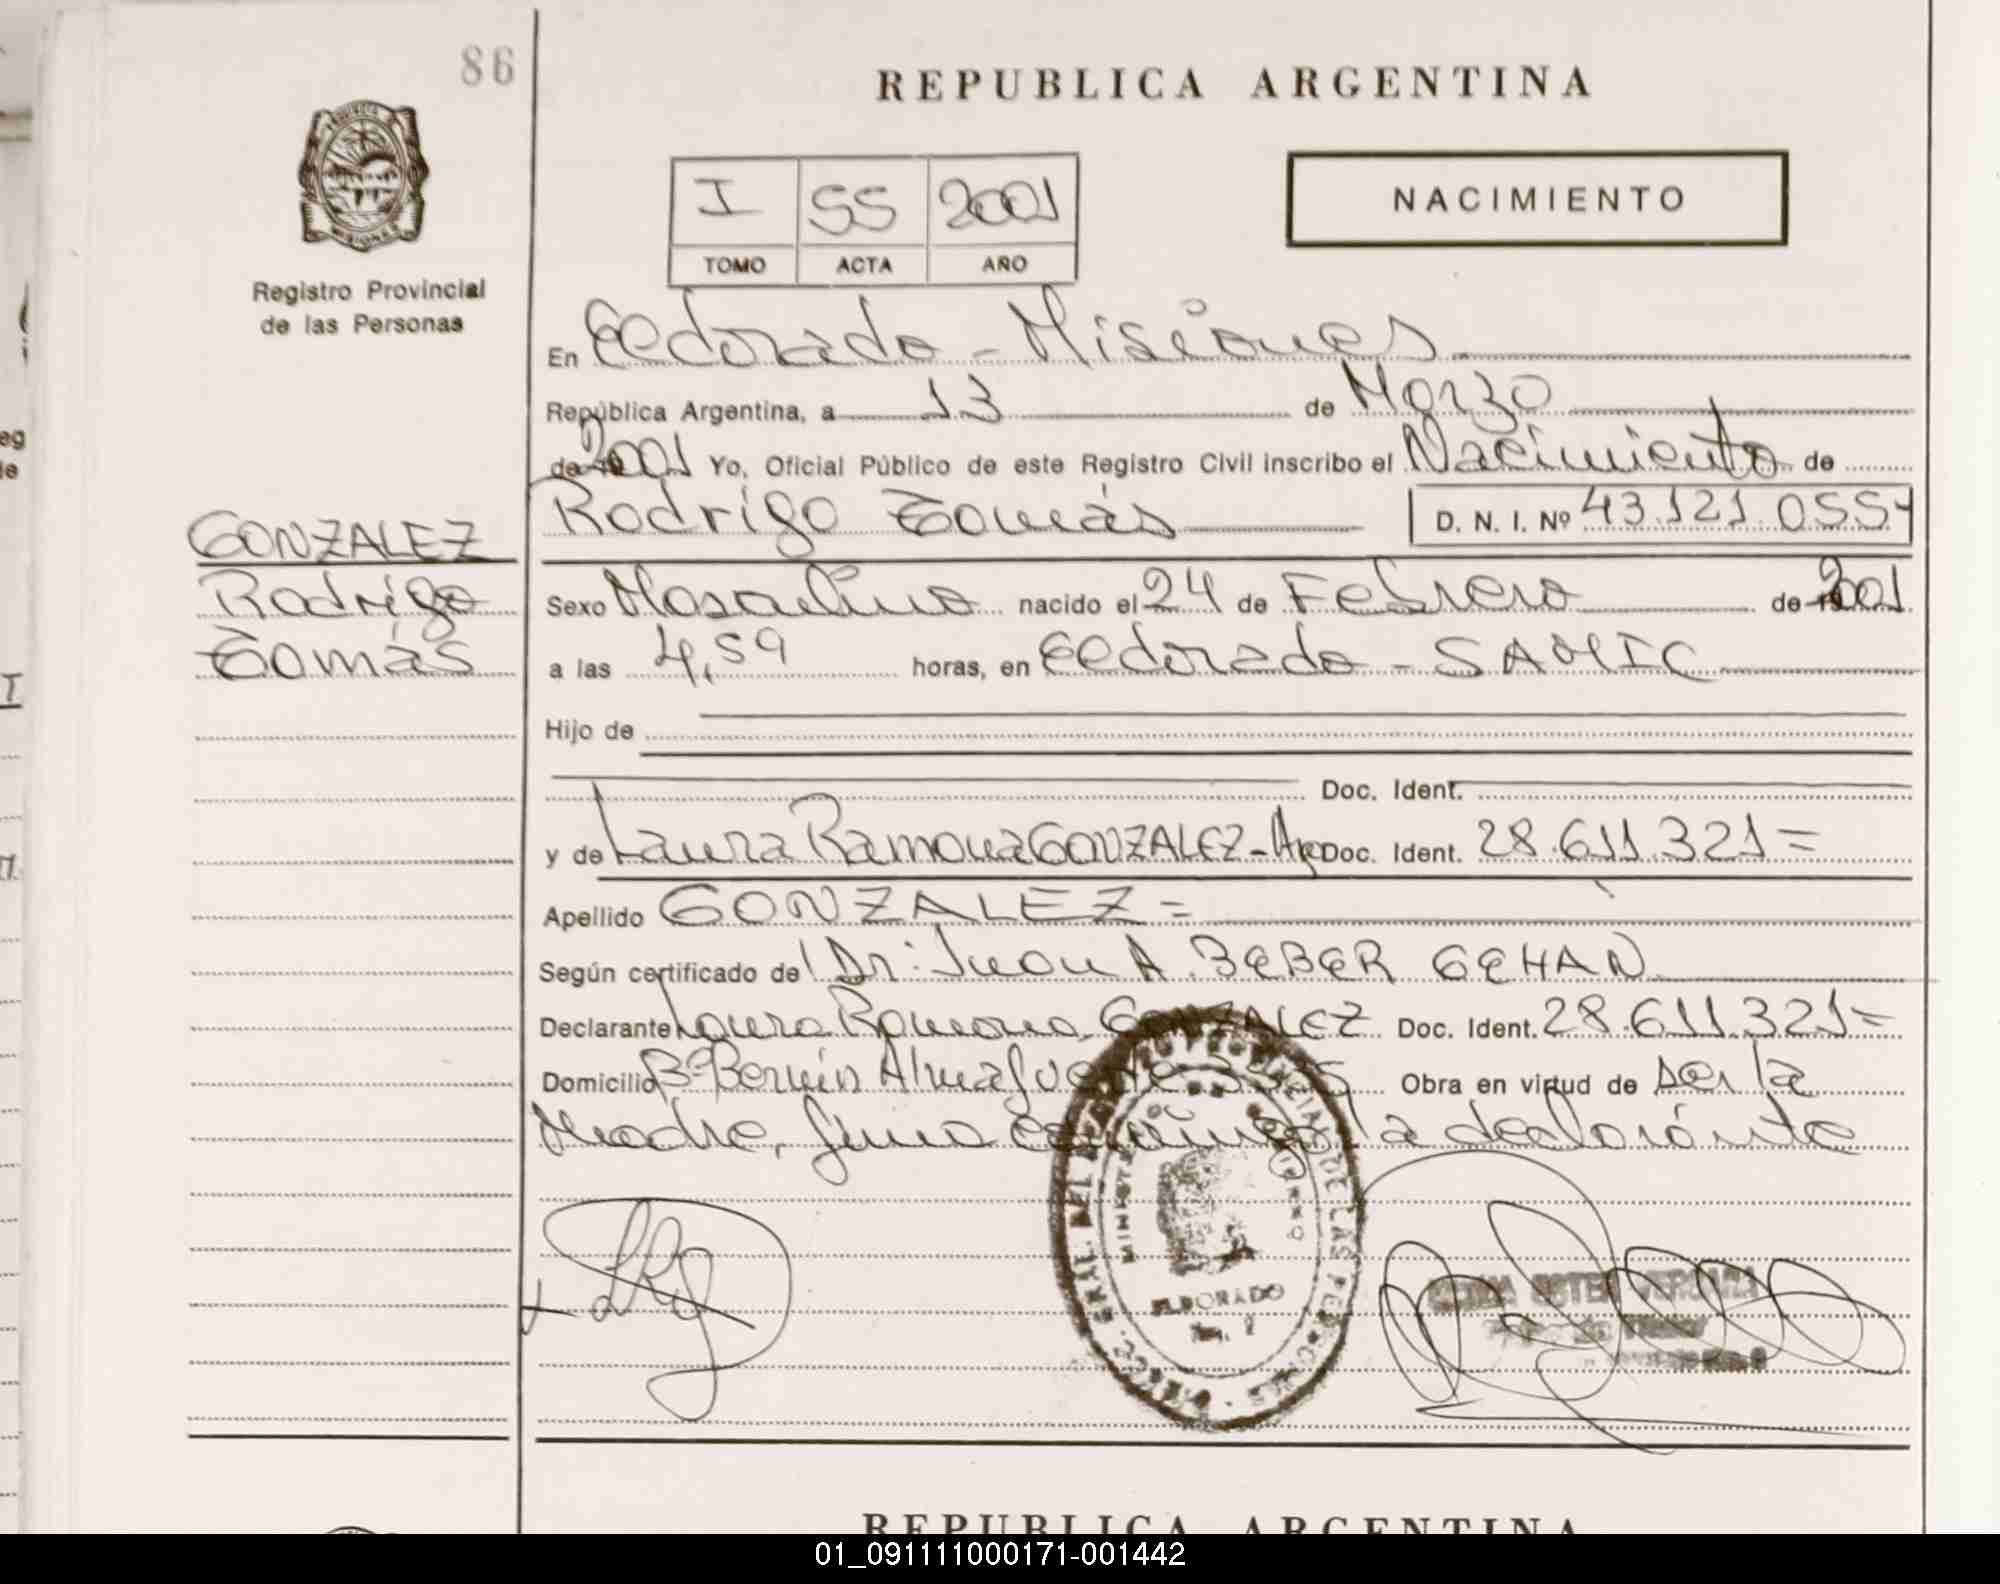 86
REPUBLICA ARGENTINA
I 55 2001
TOMO ACTA AÑO
NACIMIENTO
Registro Provincial
de las Personas
En Eldorado - Misiones
República Argentina, a 13 de Marzo
de 2001 Yo, Oficial Público de este Registro Civil inscribo el Nacimiento de
Rodrigo Tomás D. N. I. Nº 43.121.055
GONZALEZ
Rodrigo
Tomás
Sexo Masculino nacido el 24 de Febrero de 2001
a las 4,59 horas, en Eldorado - SAMIC
Hijo de
Doc. Ident.
y de Laura Ramona GONZALEZ - Arg Doc. Ident. 28.611.321=
Apellido GONZALEZ =
Según certificado de Dr: Juan A. BEBER GEHAN
Declarante Laura Ramona GONZALEZ Doc. Ident. 28.611.321=
Domicilio Bº Bernín Almafuerte Obra en virtud de ser la
Madre, firma conmigo la declarante
ELDORADO
REPUBLICA ARGENTINA
01_091111000171-001442